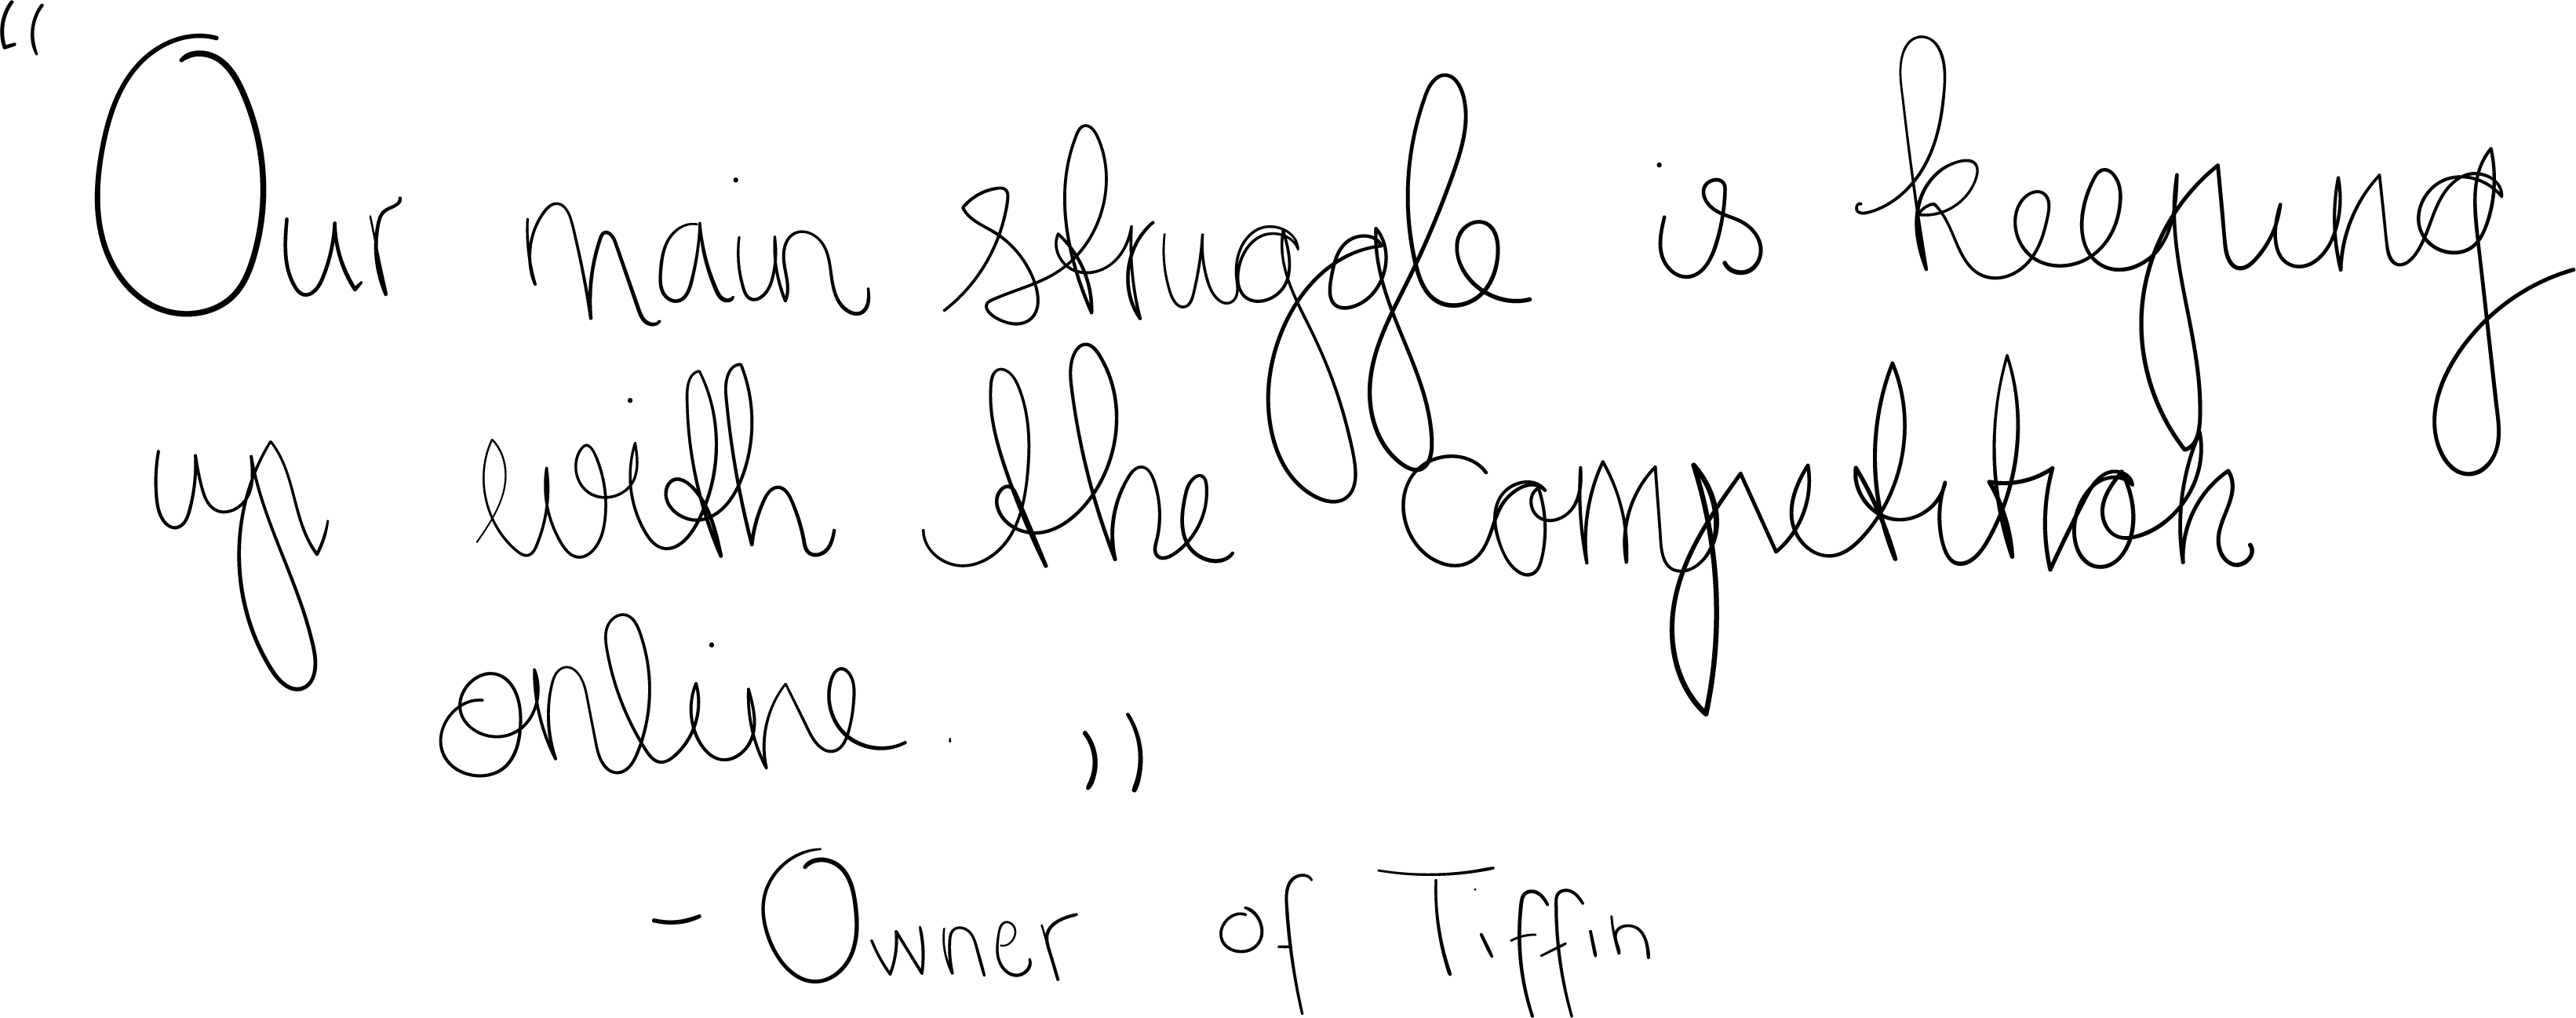 “Our main struggle is keeping
up with the competition
online.”
- Owner of Tiffin